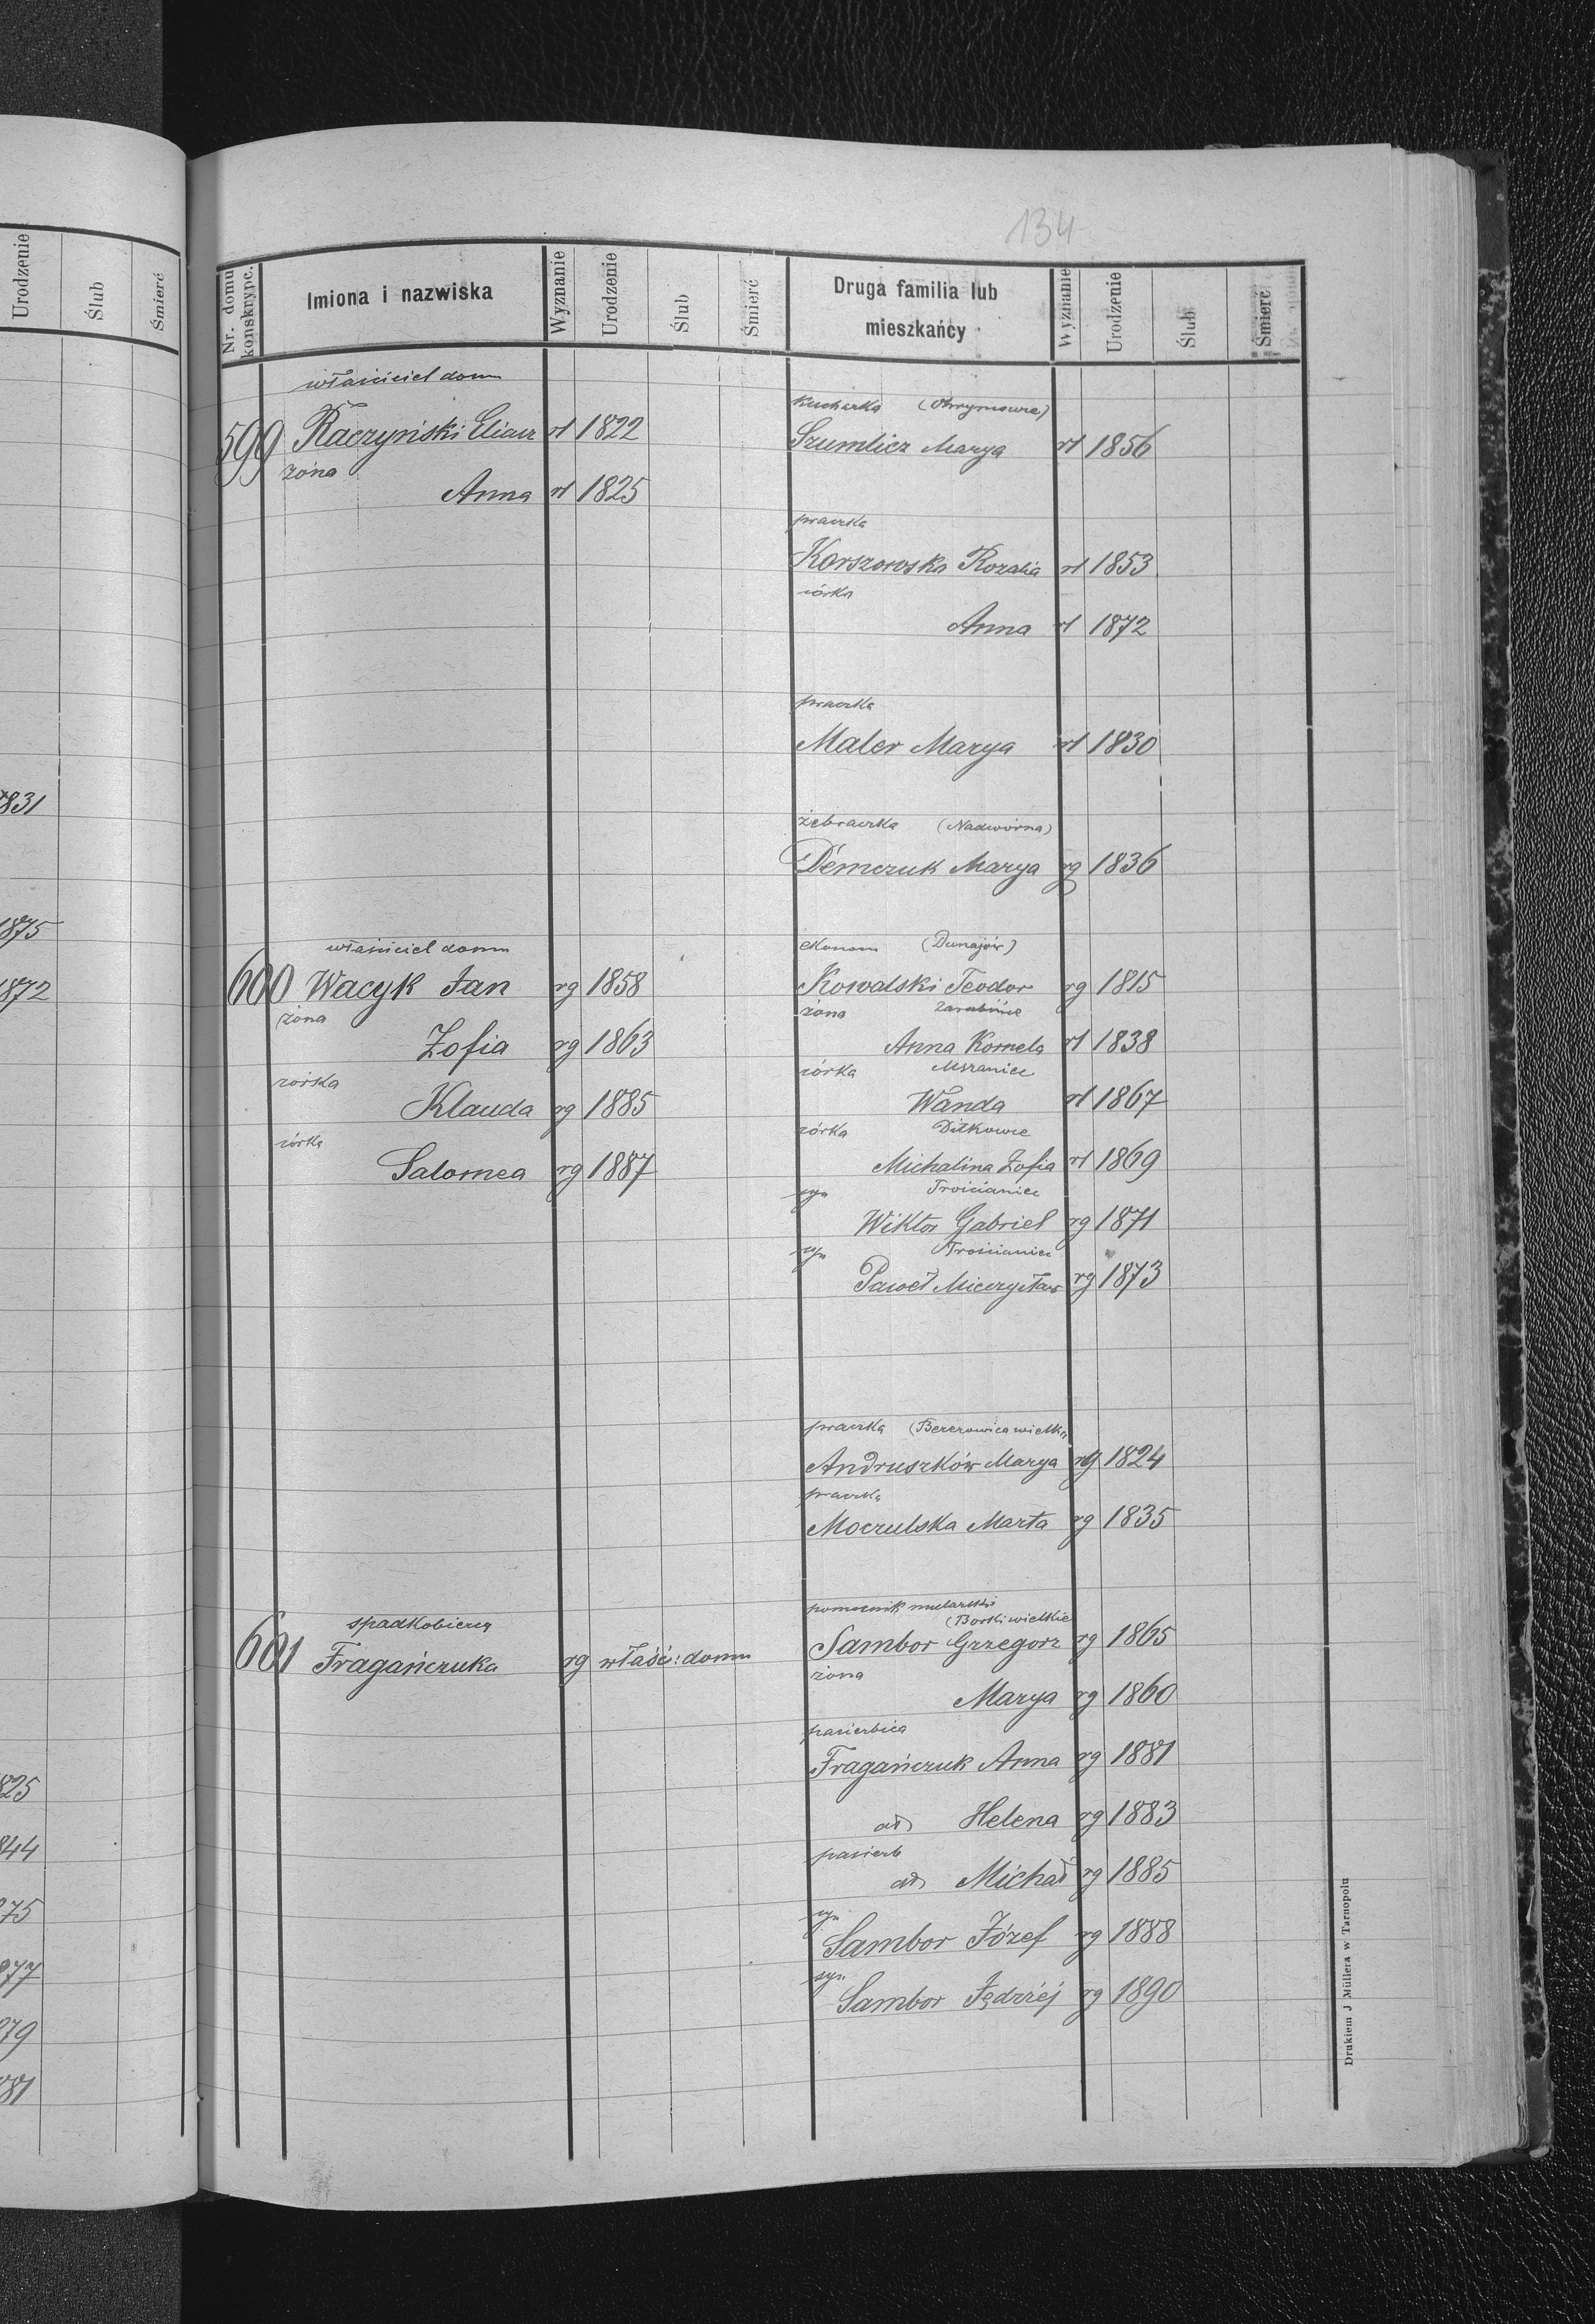 134
Urodzenie Ślub Śmierć
Nr. domu konskrypc. Imiona i nazwiska Wyznanie Urodzenie Ślub Śmierć Druga familia lub mieszkańcy Wyznanie Urodzenie Ślub Śmierć
właściciel domu
599 Raczyński Eliasz rł 1822
żona
Anna rł 1825
kucharka
Szumlicz Marya rł 1856
praczka
Korszowska Rozalia rł 1853
córka
Anna rł 1872
praczka
Maler Marya rł 1830
żebraczka (Nadwórna)
Demczuk Marya rg 1836
właściciel domu
600 Wacyk Jan rg 1858
żona
Zofia rg 1863
córka
Klauda rg 1885
córka
Salomea rg 1887
ekonom (Dunajów)
Kowalski Teodor rg 1815
żona Zarubińce
Anna Kornela rł 1838
córka Mszaniec
Wanda rł 1867
córka Ditkowce
Michalina Zofia rł 1869
syn Trościaniec
Wiktor Gabriel rg 1871
syn Trościaniec
Paweł Mieczysław rg 1873
praczka (Berezowica wielka
Andruszków Marya rg 1824
praczka
Moczulska Marta rg 1835
spadkobiercy
601 Fragańczuka rg właśc: domu
pomocnik mularski
(Borki wielkie
Sambor Grzegorz rg 1865
żona
Marya rg 1860
pasierbica
Fragańczuk Anna rg 1881
Helena rg 1883
pasierb
Michał rg 1885
syn
Sambor Józef rg 1888
syn
Sambor Jędrzej rg 1890
Drukiem J Müllera w Tarnopolu
1831
1875
1872
825
844
875
877
879
881